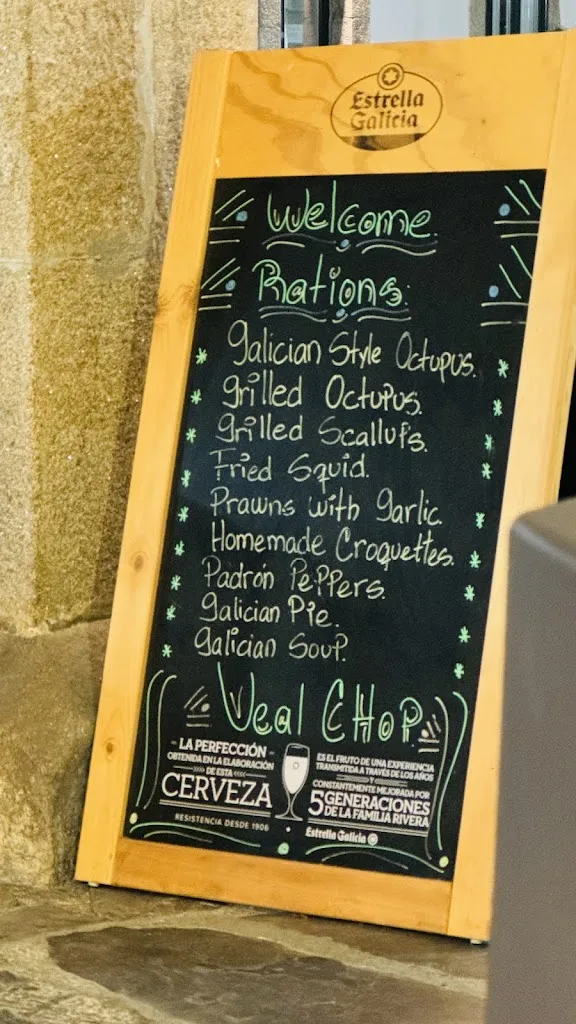 Estrella
Galicia
Welcome.
Rations:
Galician Style Octupus.
Grilled Octupus.
Grilled Scallups.
Fried Squid.
Prawns with garlic.
Homemade Croquettes.
Padrón Peppers.
Galician Pie.
Galician Soup.
Veal CHOP
LA PERFECCIÓN
OBTENIDA EN LA ELABORACIÓN
DE ESTA
CERVEZA
RESISTENCIA DESDE 1906
ES EL FRUTO DE UNA EXPERIENCIA
TRANSMITIDA A TRAVÉS DE LOS AÑOS
Y
CONSTANTEMENTE MEJORADA POR
5 GENERACIONES
DE LA FAMILIA RIVERA
Estrella Galicia